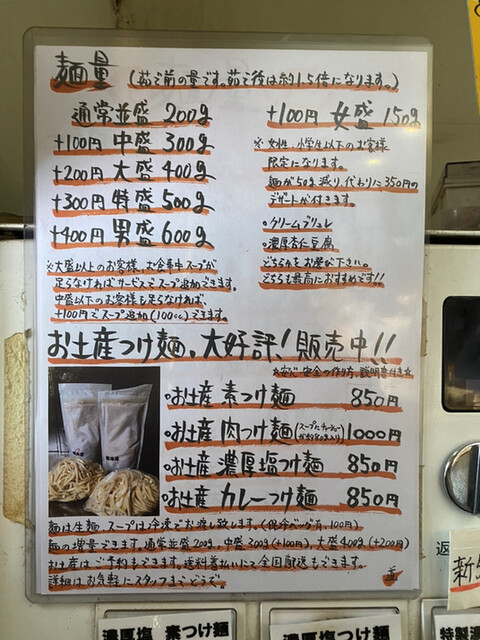 麺量 (茹で前の量です。茹で後は約1.5倍になります。)
通常並盛 200g
+100円 中盛 300g
+200円 大盛 400g
+300円 特盛 500g
+400円 男盛 600g
※大盛以上のお客様、お食事中スープが
足らなければサービスでスープ追加できます。
中盛以下のお客様も足らなければ、
+100円でスープ追加(100cc)できます。
+100円 女盛 150g
※女性、小学生以下のお客様
限定になります。
麺が50g減り、代わりに350円の
デザートが付きます。
•クリームブリュレ
•濃厚杏仁豆腐
どちらかをお選び下さい。
どちらも最高におすすめです!!
お土産つけ麺、大好評!販売中!!
☆安心・安全の作り方、説明書付き☆
•お土産 素つけ麺 850円
•お土産 肉つけ麺 1000円
•お土産 濃厚塩つけ麺 850円
•お土産 カレーつけ麺 850円
麺は生麺、スープは冷凍でお渡し致します。(保冷バッグ有、100円)
麺の増量できます。通常並盛200g、中盛300g(+100円)、大盛400g(+200円)
お土産はご予約もできます。送料着払いにて全国配送もできます。
詳細はお気軽にスタッフまでどうぞ。
返
新
濃厚塩 素つけ麺
濃厚塩つけ麺
特製